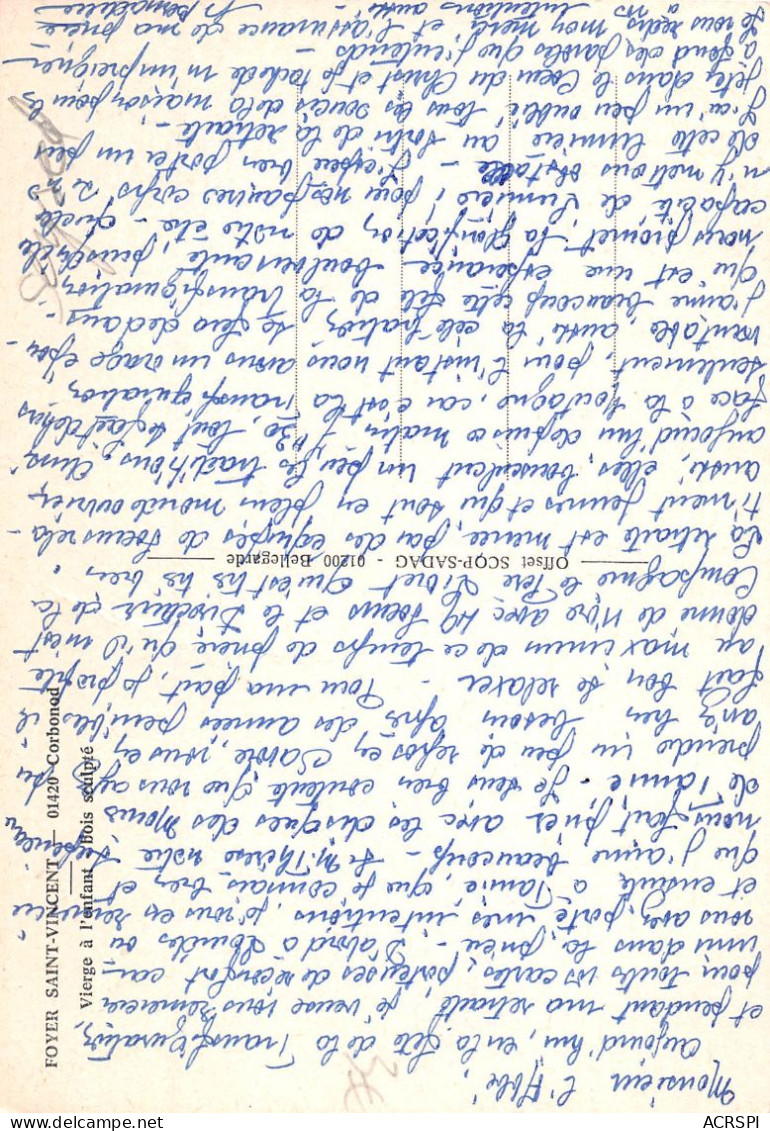 FOYER SAINT-VINCENT — 01420 Corbonod
Vierge à l'enfant bois sculpté
Offset SCOP-SADAG - 01200 Bellegarde
Monsieur l'Abbé,
Aujourd'hui, en la fête de la Transfiguration,
et pendant ma retraite, je veux vous remercier
pour toutes vos cartes, porteuses de réconfort car
unis dans la prière. D'abord à Lourdes où
vous avez porté mes intentions, je vous en remercie
et ensuite à Tamié, que je connais bien et
que j'aime beaucoup - Sr M. Thérèse notre
nous fait prier avec les disques des Moines
de Tamié - Je suis bien contente que vous ayez pu
prendre un peu de repos en Savoie, vous en
avez bien besoin après des années pénibles il
fait bon se relaxer - Pour ma part, je profite
au maximum de ce temps de prière qu'il m'est
donné de vivre avec 49 soeurs et le Directeur de la
Compagnie le Père Lloret qu'est très très bien.
La retraite est menée, par des équipes de soeurs rela-
tivement jeunes et qui sont en plein monde ouvrier,
aussi, elles bousculent un peu les traditions. Ainsi,
aujourd'hui depuis ce matin 7h30, tout se fait dehors
face à la montagne, car c'est la Transfiguration,
seulement, pour l'instant nous avons un orage épou-
vantable, aussi la célébration se fera dedans -
J'aime beaucoup cette fête de la Transfiguration,
qu'est une espérance bouleversante, puisqu'elle
nous promet la glorification de notre être - Quelle
capacité de lumière, pour nos pauvres corps si ns
n'y mettions obstacle - J'espère bien porter un peu
de cette lumière au sortir de la retraite -
J'ai un peu oublié tous les soucis de la maison pour les
jeter dans le Coeur du Christ et je tâche de m'imprégner
à fond des paroles que j'entends -
Je vous redis mon merci et l'assurance de ma prière
à nos intentions aussi -